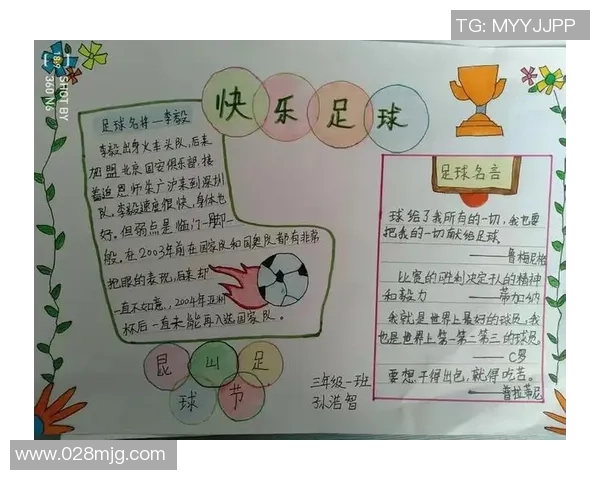 TG: MYYJJPP
SHOT BY
360 N6
快乐足球
足球名将—李毅
李毅出身火车头队,后来
加盟北京国安俱乐部,接
着追恩师朱广沪来到深圳
队。李毅速度很快,身体也
好。但弱点是临门一脚一
般。在2003年前在国家队和国奥队都有非常
抢眼的表现,后来却
一直不如意,2004年亚洲
杯后一直未能再入选国家队。
足球名言
球给了我所有的一切,我也要
把我的一切献给足球。
——鲁梅尼格
比赛的胜利决定于人的精神
和毅力 ——蒂加纳
我就是世界上最好的球员,我
也是世界上第一第二第三的球员。
——C罗
要想干得出色,就得吃苦。
——普拉蒂尼
昆山足
球节
三年级一班
孙浩智
www.028mjg.com